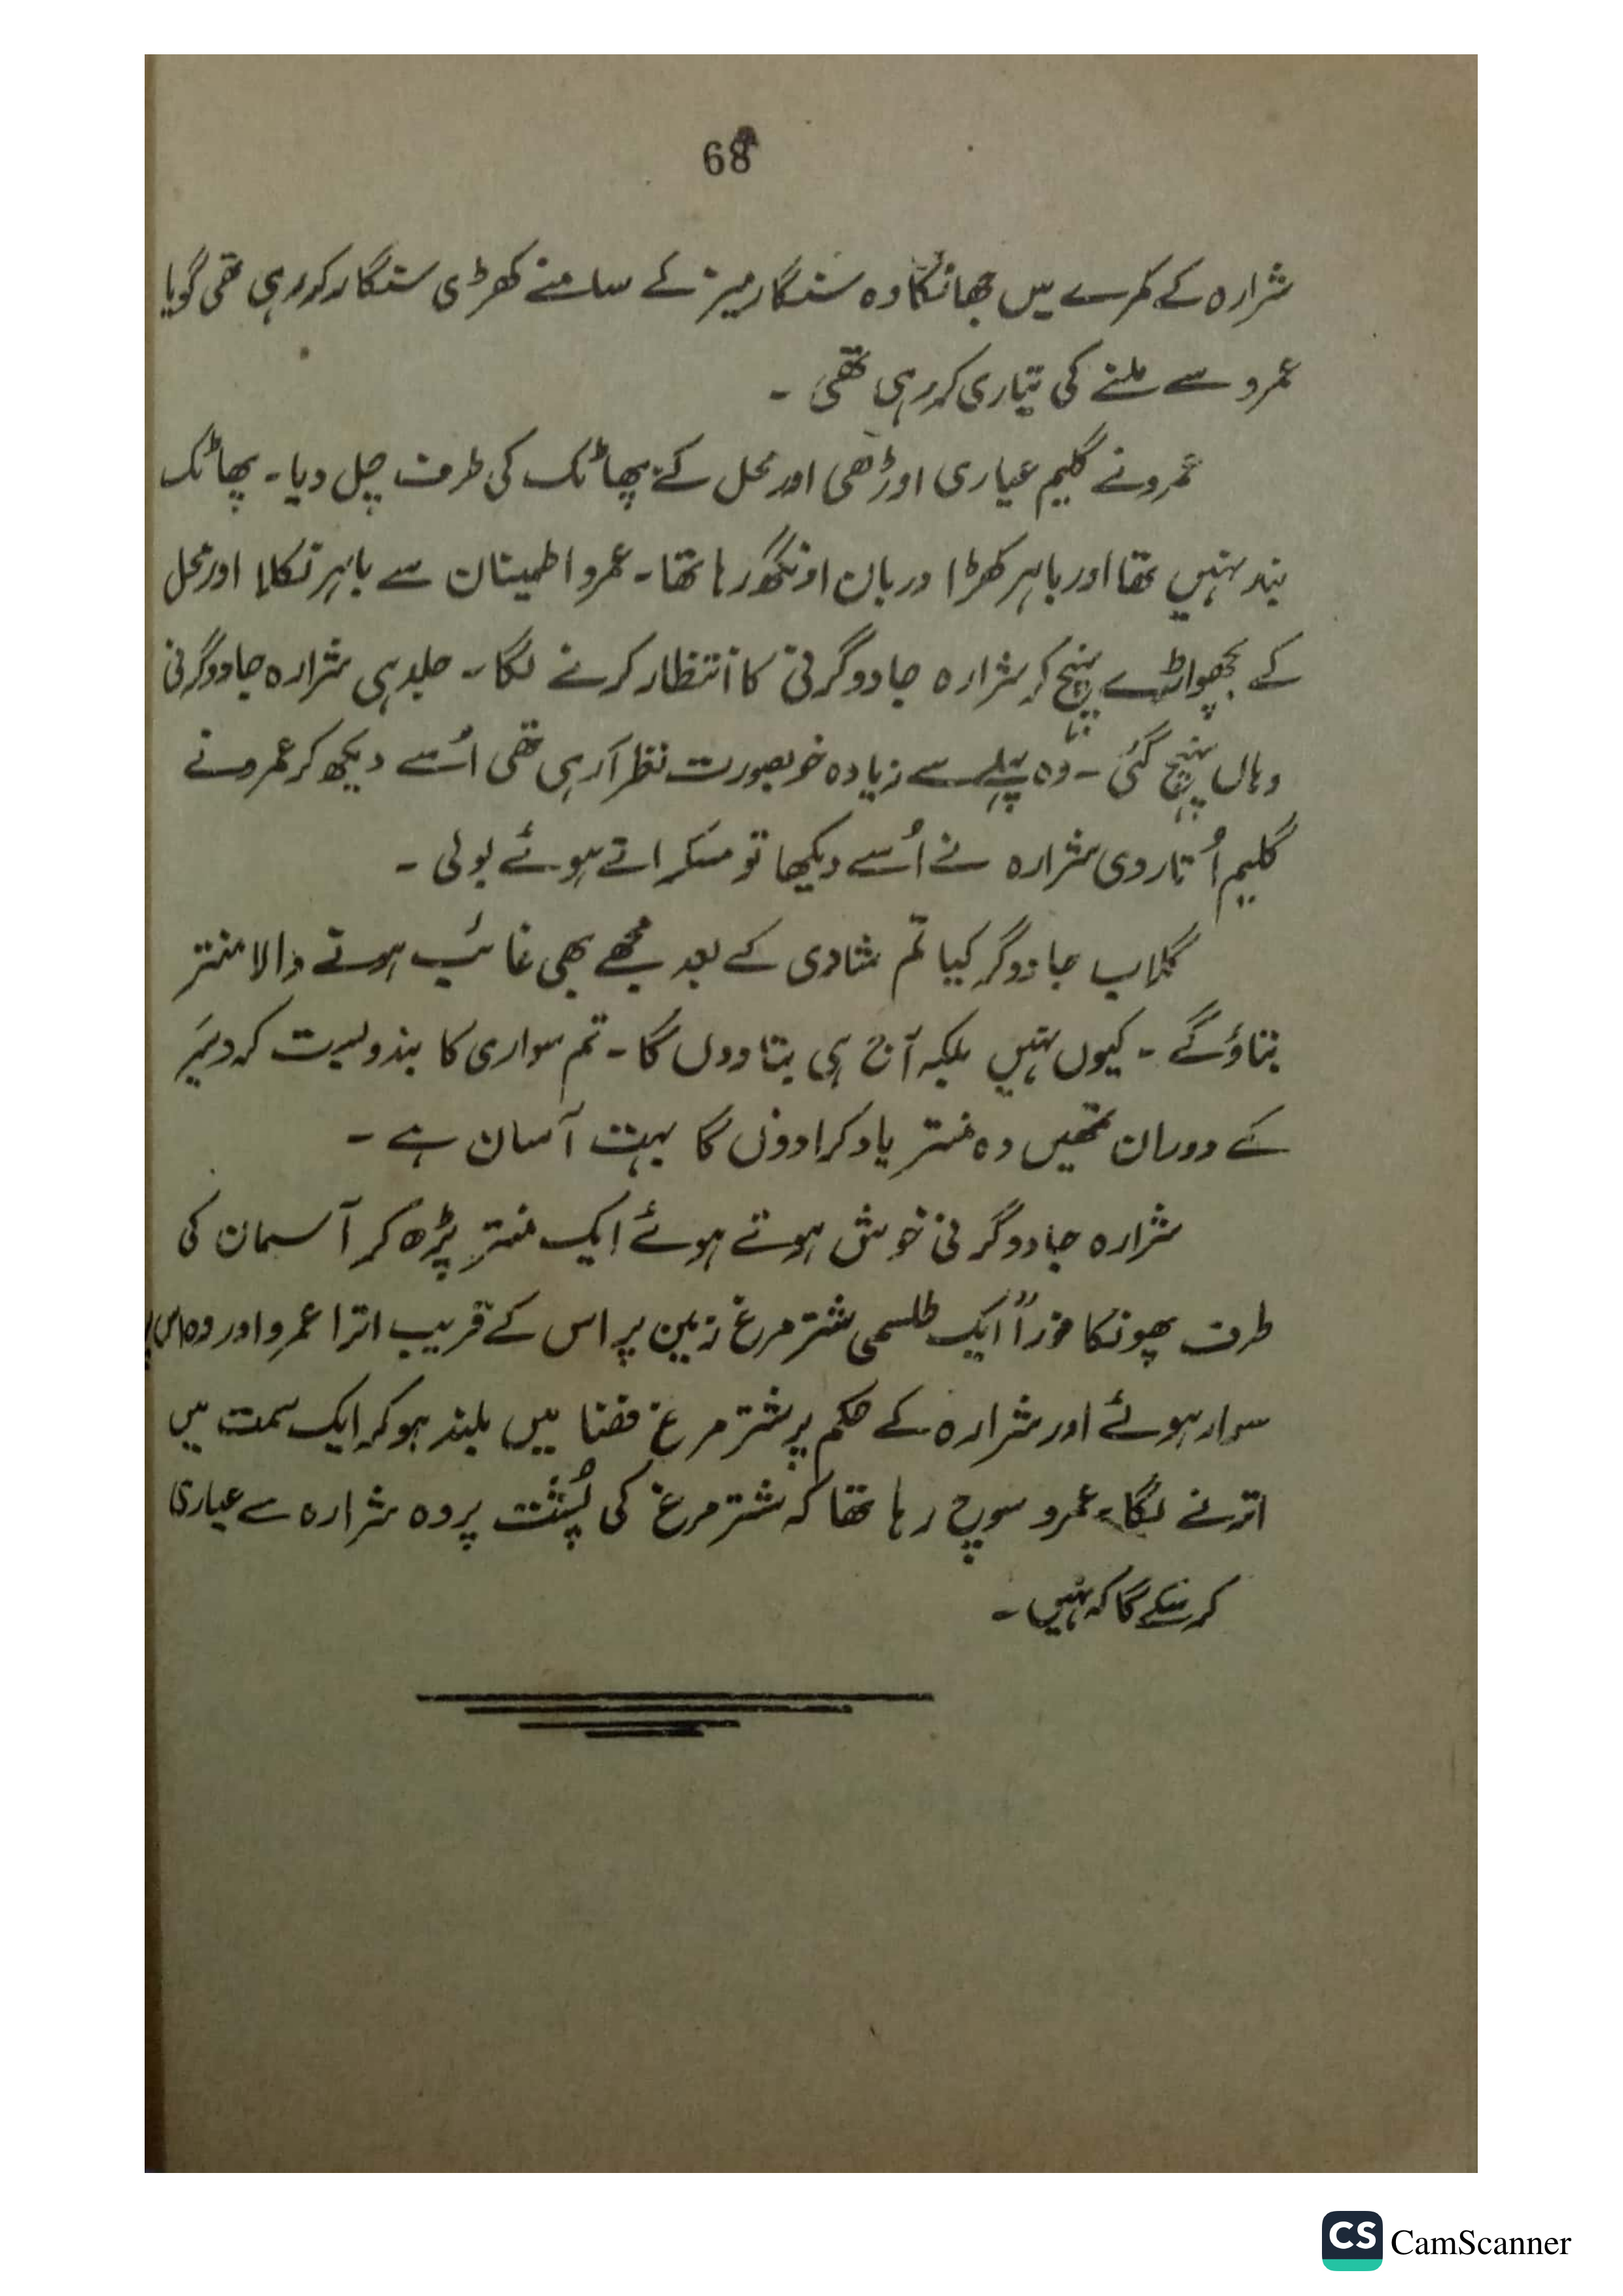 68
شرارہ کے کمرے میں جھانکا وہ سنگار میز کے سامنے کھڑی سنگار کر رہی تھی گویا
عمرو سے ملنے کی تیاری کر رہی تھی ۔
عمرو نے گلیم عیاری اوڑھی اور محل کے پھاٹک کی طرف چل دیا ۔ پھاٹک
بند نہیں تھا اور باہر کھڑا دربان اونگھ رہا تھا ۔ عمرو اطمینان سے باہر نکلا اور محل
کے پچھواڑے پہنچ کر شرارہ جادوگرنی کا انتظار کرنے لگا ۔ جلد ہی شرارہ جادوگرنی
وہاں پہنچ گئی ۔ وہ پہلے سے زیادہ خوبصورت نظر آ رہی تھی اُسے دیکھ کر عمرو نے
گلیم اُتار دی شرارہ نے اُسے دیکھا تو مسکراتے ہوئے بولی ۔
گلاب جادوگر کیا تم شادی کے بعد مجھے بھی غائب ہونے والا منتر
بتاؤ گے ۔ کیوں نہیں بلکہ آج ہی بتا دوں گا ۔ تم سواری کا بندوبست کرو سَیر
کے دوران تمھیں وہ منتر یاد کرا دوں گا بہت آسان ہے ۔
شرارہ جادوگرنی خوش ہوتے ہوئے ایک منتر پڑھ کر آسمان کی
طرف پھونکا فوراً ایک طلسمی شتر مرغ زمین پر اس کے قریب اترا عمرو اور وہ اس پر
سوار ہوئے اور شرارہ کے حکم پر شتر مرغ فضا میں بلند ہو کر ایک سمت میں
اڑنے لگا ۔ عمرو سوچ رہا تھا کہ شتر مرغ کی پُشت پر وہ شرارہ سے عیاری
کر سکے گا کہ نہیں ۔
CS CamScanner